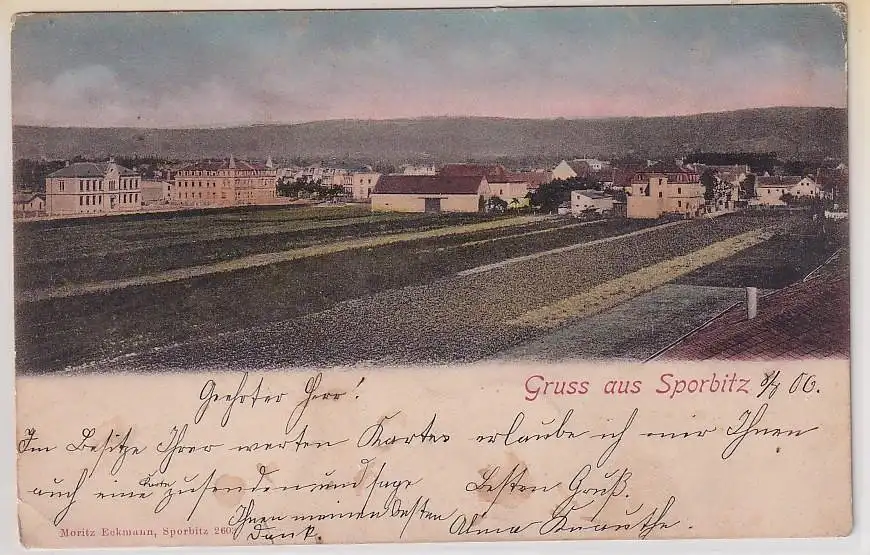 Gruss aus Sporbitz 8/7 06.
Geehrter Herr!
Im Besitze Ihrer werten Kartes erlaube ich mir Ihnen
auch eine Karte zusenden und sage Besten Gruß.
Ihnen meinen besten Alma Knauthe.
Dank.
Moritz Eckmann, Sporbitz 260